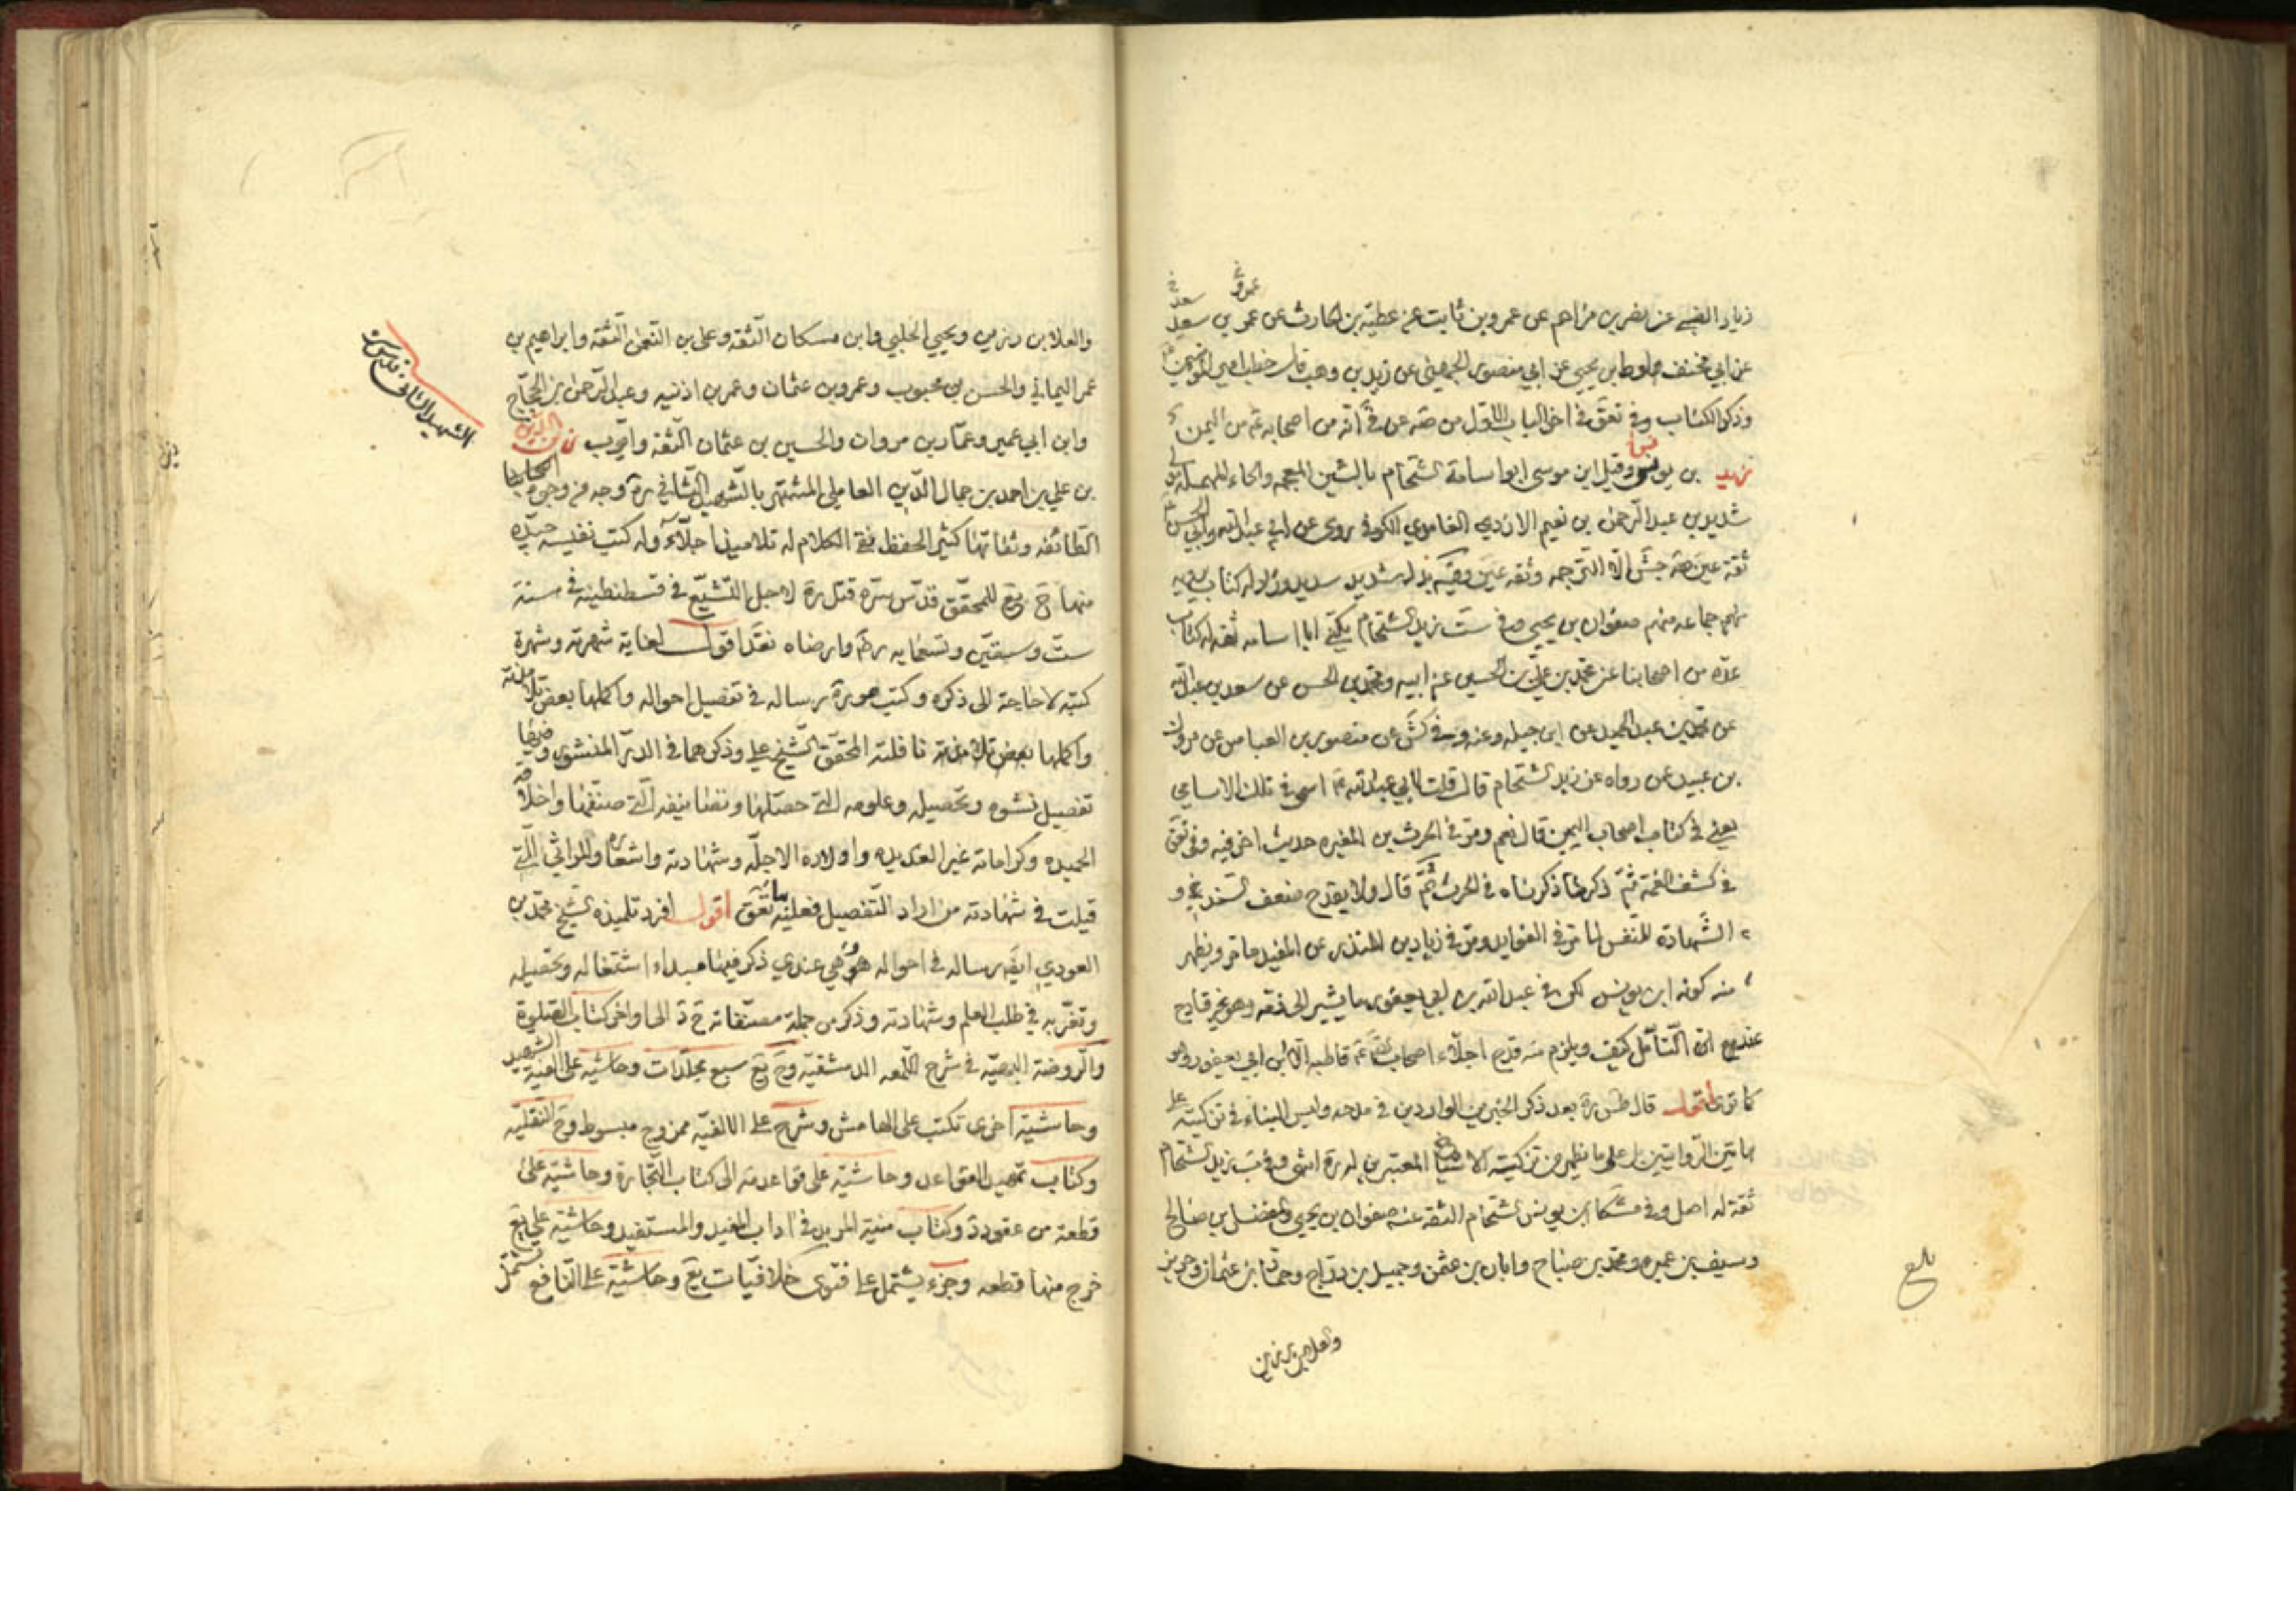 عمرو خ
سعد خ
زياد الضبي عن نصر بن مزاحم عن عمرو بن ثابت عن عطية بن الحارث عن عمر بن سعد
عن ابي مخنف لوط بن يحيى عن ابي منصور الجهني عن زيد بن وهب قال خطب امير المؤمنين ع
وذكر الكتاب وفي تعق في اخر الباب الاول من صه عن قي انه من اصحابه ع من اليمن
زيد بن يونس وقيل ابن موسى ابو اسامة الشحام بالشين المعجمه والحاء المهمله
شديد بن عبد الرحمن بن نعيم الازدي الغامدي الكوفي روى عن ابي عبد الله وابي الحسن ع
ثقة عين صه جش الا الترجمه وثقه عين وفيه بدل شديد سديد وزاد له كتاب يرويه
جماعه منهم صفوان بن يحيى وفي ست زيد الشحام يكنى ابا اسامه ثقه له كتاب
عده من اصحابنا عن محمد بن علي بن الحسين عن ابيه ومحمد بن الحسن عن سعد بن عبد الله
عن محمد بن عبد الحميد عن ابي جميله عنه وفي كش عن منصور بن العباس عن مروك
بن عبيد عن رواه عن زيد الشحام قال قلت لابي عبد الله ع اسمي في تلك الاسامي
يعني في كتاب اصحاب اليمين قال نعم ومر في الحرث بن المغيره حديث اخر فيه وفي تعق
في كشف الغمة ثم ذكر ما ذكرناه في الحرث ثم قال ولا يقدح ضعف السند
الشهادة للنفس لما مر في الفوايد ومر في زياد بن المنذر عن المفيد ما مر ويظهر
منه كونه ابن يونس لكن في عبد الله بن ابي يعفور ما يشير الى ذمه وهو غير قادح
عند مع التأمل كيف ويلزم منه قدح اجلاء اصحاب ع قاطبه الا ابن ابي يعفور وهو
كما ترى اقول قال طس ره بعد ذكر الخبرين الواردين في مدحه وليس البناء في تزكيته على
هاتين الروايتين بل على ما يظهر من تزكيته الاشياخ المعتبرين له ره انتهى وفي ب زيد الشحام
ثقة له اصل وفي مشكا ابن يونس الشحام الثقه عنه صفوان بن يحيى والمفضل بن صالح
وسيف بن عميره ومحمد بن صباح وابان بن عثمن وجميل بن دراج وحماد بن عثمان وحريز
بلغ
والعلا بن رزين
والعلا بن رزين ويحيى الحلبي وابن مسكان الثقه وعلي بن النعمن الثقه وابراهيم بن
عمر اليماني والحسن بن محبوب وعمرو بن عثمان وعمر بن اذنيه وعبد الرحمن بن الحجاج
وابن ابي عمير وعمار بن مروان والحسين بن عثمان الثقه وايوب زين الدين
الشهيد الثاني قدس سره
بن علي بن احمد بن جمال الدين العاملي المشتهر بالشهيد الثاني ره وجه من وجوه اصحابنا
الطائفه وثقاتها كثير الحفظ نقي الكلام له تلاميذ اجلاء وله كتب نفيسه جيده
منها ح يع للمحقق قدس سره قتل ره لاجل التشيع في قسطنطينه في سنة
ست وستين وتسعمايه ره وارضاه نقد اقول لغاية شهرته وشهرة
كتبه لا حاجة الى ذكره وكتب هو ره رساله في تفصيل احواله واكملها بعض تلامذته
واكملها بعض تلامذته نافلته المحقق الشيخ علي وذكرهما في الدر المنثور وفيها
تفصيل نشوه وتحصيله وعلومه التي حصلها وتصانيفه التي صنفها واخلاقه
الحميده وكراماته غير العديده واولاده الاجله وشهادته واشعاره والمراثي التي
قيلت في شهادته من اراد التفصيل فعليه بها تعق اقول افرد تلميذه الشيخ محمد بن
العودي ايضا رساله في احواله هي عندي ذكر فيها مبداء اشتغاله وتحصيله
وتغربه في طلب العلم وشهادته وذكر من جملة مصنفاته ح د الى اواخر كتاب الصلوة
والروضة البهيه في شرح اللمعه الدمشقيه وح يع سبع مجلدات وحاشيه على الفية الشهيد
وحاشية اخرى تكتب على الهامش وشرح على الالفيه ممزوج مبسوط وح النفليه
وكتاب تمهيد القواعد وحاشية على قواعد مه الى كتاب التجارة وحاشية على
قطعة من عقود د وكتاب منية المريد في اداب المفيد والمستفيد وحاشية على يع
خرج منها قطعه وجزء يشتمل على فتوى خلافيات يع وحاشية على النافع تشتمل